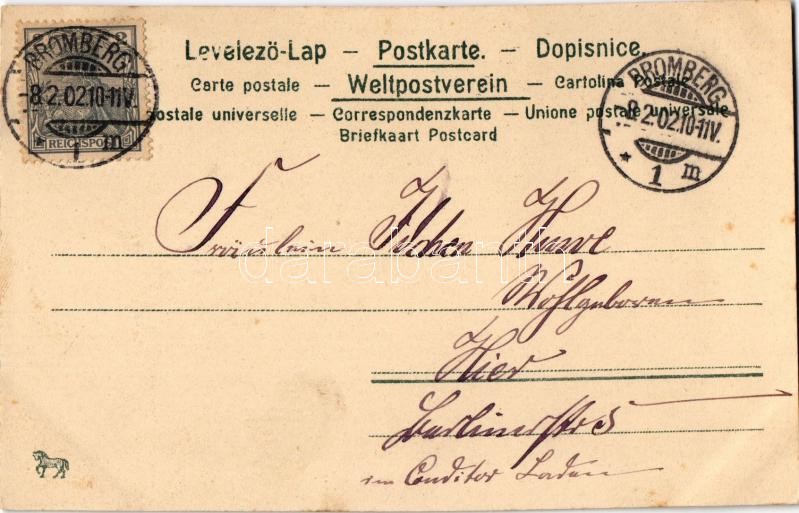 Levelezö-Lap — Postkarte. — Dopisnice.
Carte postale — Weltpostverein — Cartolina Postale
postale universelle — Correspondenzkarte — Unione postale universale
Briefkaart Postcard
BROMBERG
-8.2.02.10-11V.
* 1 m
REICHSPOST
BROMBERG
-8.2.02.10-11V.
* 1 m
Fräulein
Wohlgeboren
Hier
Berlinerstr 5
im Conditor Laden
darabanth